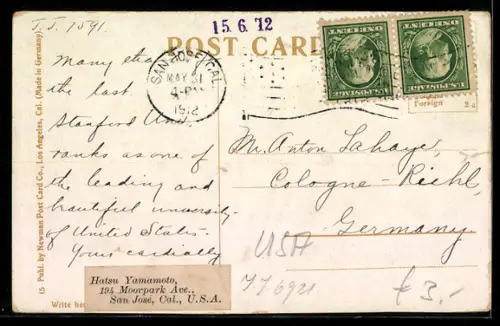 J. J. 7591.
15.6.12
POST CARD
Many thanks
the last.
Stanford Univ.
ranks as one of
the leading and
beautiful university
of United States.
Yours cordially
SAN JOSE, CAL.
MAY 31
4-PM
1912
U.S. POSTAGE
ONE CENT
U.S. POSTAGE
ONE CENT
Foreign 2c
Mr. Anton Lahaye,
Cologne-Riehl,
Germany
USA
JJ6921
£3.-
Hatsu Yamamoto,
194 Moorpark Ave.,
San José, Cal., U.S.A.
15 Publ. by Newman Post Card Co., Los Angeles, Cal. (Made in Germany).
Write her